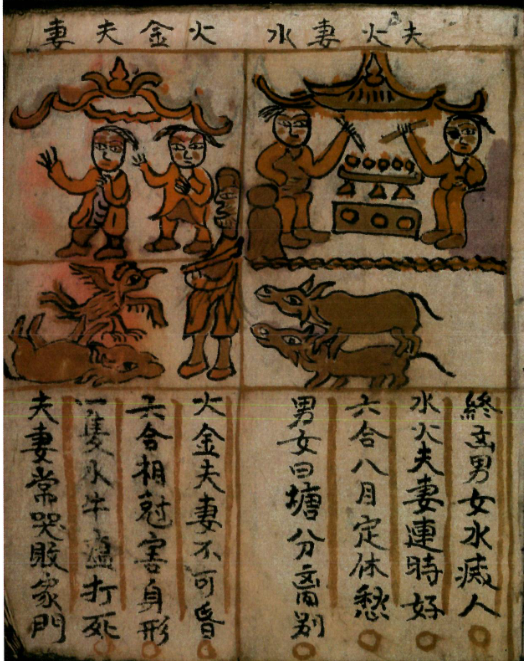 夫火妻水
終男女水滅人
水火夫妻連時好
六合八月定休愁
男女曰塘分别
火金夫妻
火金夫妻不可昏
六合相尅害身形
一隻水牛瘟打死
夫妻常哭敗家門